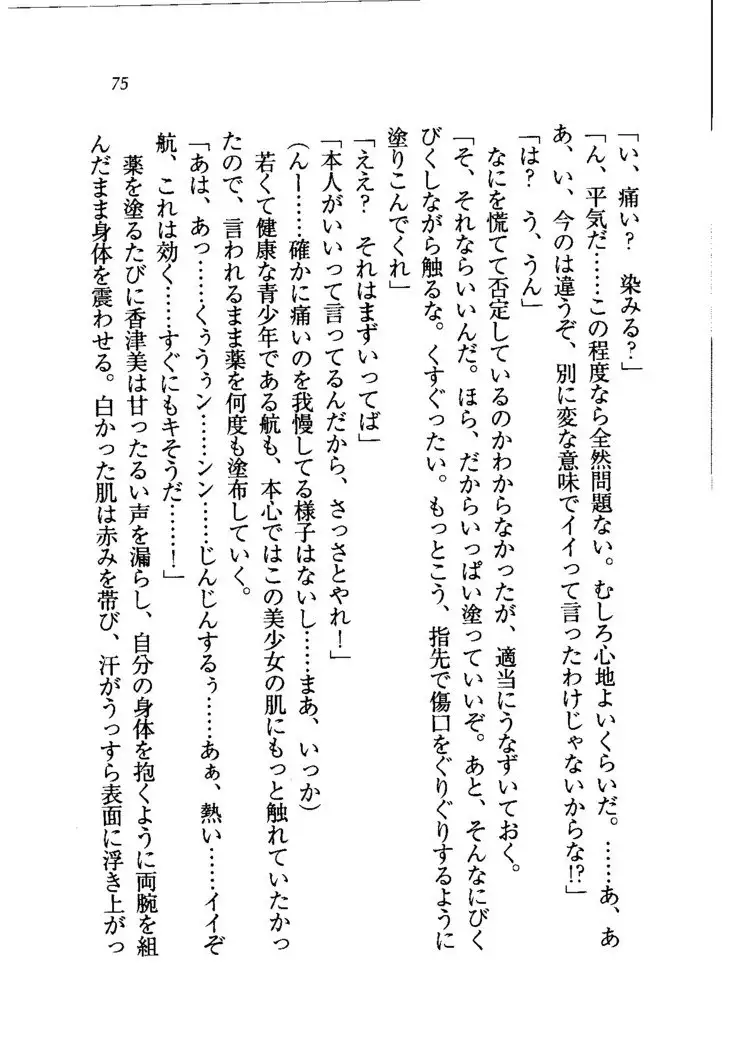 75
「い、痛い？　染みる？」
「ん、平気だ……この程度なら全然問題ない。むしろ心地よいくらいだ。……あ、あ
あ、い、今のは違うぞ、別に変な意味でイイって言ったわけじゃないからな!?」
「は？　う、うん」
　なにを慌てて否定しているのかわからなかったが、適当にうなずいておく。
「そ、それならいいんだ。ほら、だからいっぱい塗っていいぞ。あと、そんなにびく
びくしながら触るな。くすぐったい。もっとこう、指先で傷口をぐりぐりするように
塗りこんでくれ」
「ええ？　それはまずいってば」
「本人がいいって言ってるんだから、さっさとやれ！」
（んー……確かに痛いのを我慢してる様子はないし……まあ、いっか）
　若くて健康な青少年である航も、本心ではこの美少女の肌にもっと触れていたかっ
たので、言われるまま薬を何度も塗布していく。
「あは、あっ……くぅうぅン……ンン……じんじんするぅ……あぁ、熱い……イイぞ
航、これは効く……すぐにもキそうだ……！」
　薬を塗るたびに香津美は甘ったるい声を漏らし、自分の身体を抱くように両腕を組
んだまま身体を震わせる。白かった肌は赤みを帯び、汗がうっすら表面に浮き上がっ